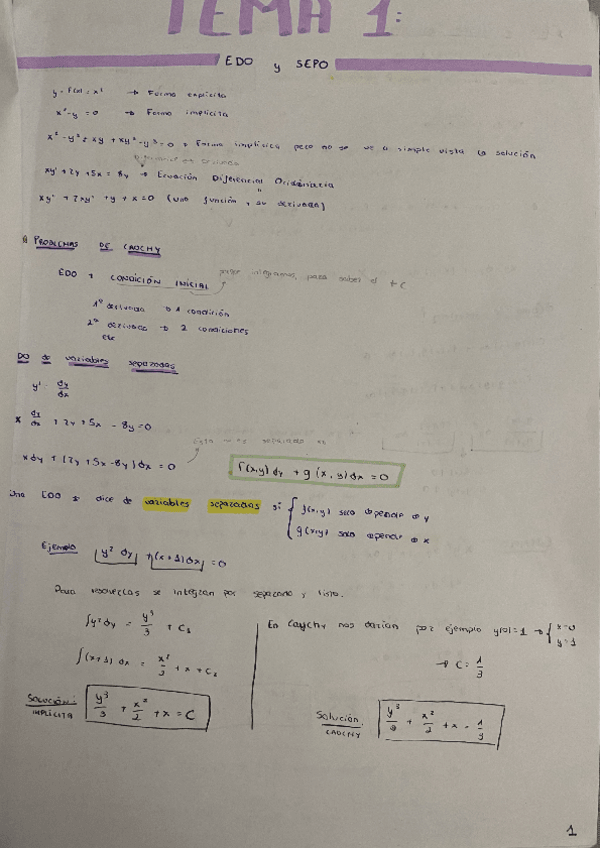 TEMA 1:
EDO y SEPO
y = f(x) = x² → Forma explícita
x² - y = 0 → Forma implícita
x² - y² + xy + xy² - y³ = 0 → Forma implícita pero no se ve a simple vista la solución
xy' + 2y + 5x = 8y → Ecuación Diferencial Ordinaria
+ y + x = 0 (una función y su derivada)
PROBLEMAS DE CAUCHY
EDO + CONDICIÓN INICIAL
integramos, para saber el + C
1ª derivada → 1 condición
2ª derivada → 2 condiciones
etc
DO de variables separadas
y' = dy/dx
x dy/dx + 2y + 5x - 8y = 0
x dy + (2y + 5x - 8y) dx = 0
f(x,y) dy + g(x,y) dx = 0
Una EDO se dice de variables separadas si { f(x,y) solo depende de y
g(x,y) solo depende de x
Ejemplo y² dy + (x+1) dx = 0
Para resolverlas se integran por separado y listo.
∫y² dy = y³/3 + C₁
∫(x+1) dx = x²/2 + x + C₂
SOLUCIÓN: IMPLÍCITA
y³/3 + x²/2 + x = C
En Cauchy nos darían por ejemplo y(0) = 1 → { x=0
y=1
→ C = 1/3
Solución CAUCHY
y³/3 + x²/2 + x = 1/3
1